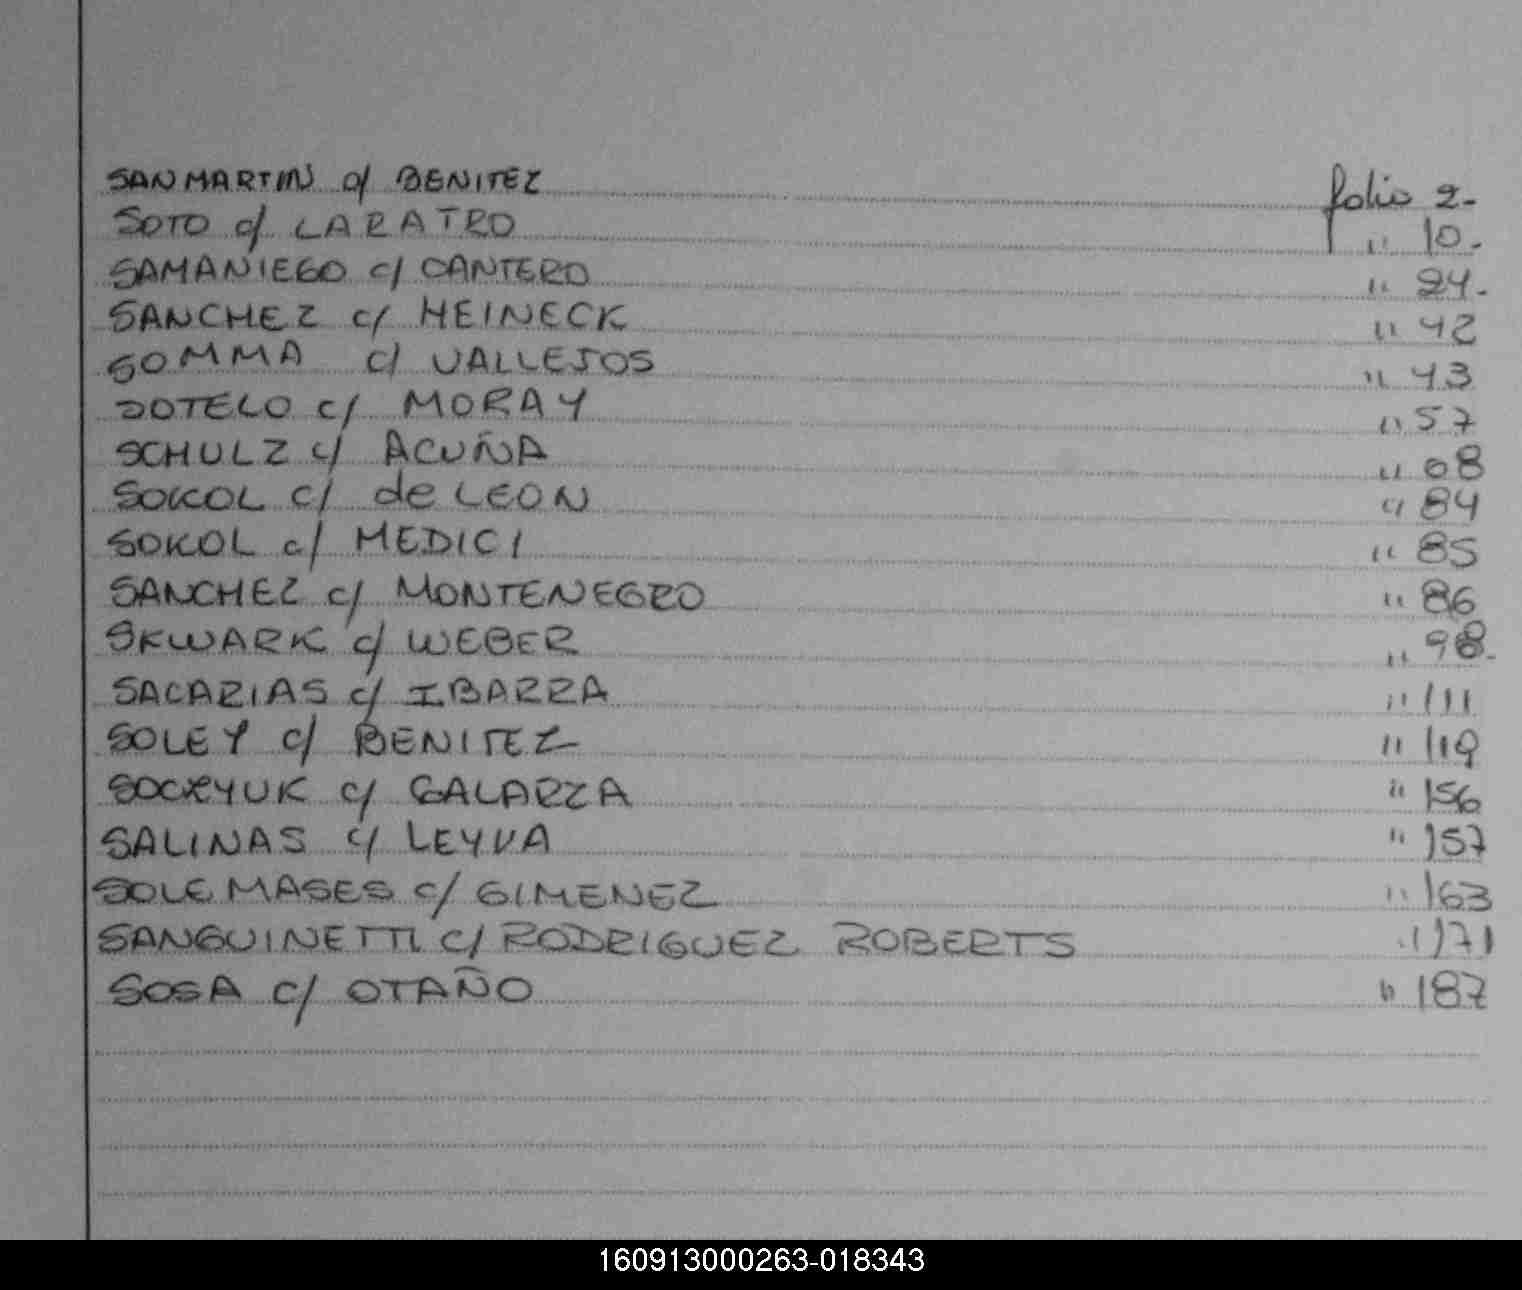 SANMARTIN c/ BENITEZ folio 2.-
SOTO c/ LARATRO " 10.-
SAMANIEGO c/ CANTERO " 24.-
SANCHEZ c/ HEINECK " 42
SOMMA c/ VALLEJOS " 43
SOTELO c/ MORAY " 57
SCHULZ c/ ACUÑA " 08
SOKOL c/ de LEON " 84
SOKOL c/ MEDICI " 85
SANCHEZ c/ MONTENEGRO " 86
SKWARK c/ WEBER " 98.-
SACARIAS c/ IBARRA " 111
SOLEY c/ BENITEZ " 119
c/ GALARZA " 156
SALINAS c/ LEYVA " 157
SOLE MASES c/ GIMENEZ " 163
SANGUINETTI c/ RODRIGUEZ ROBERTS " 171
SOSA c/ OTAÑO " 187
160913000263-018343